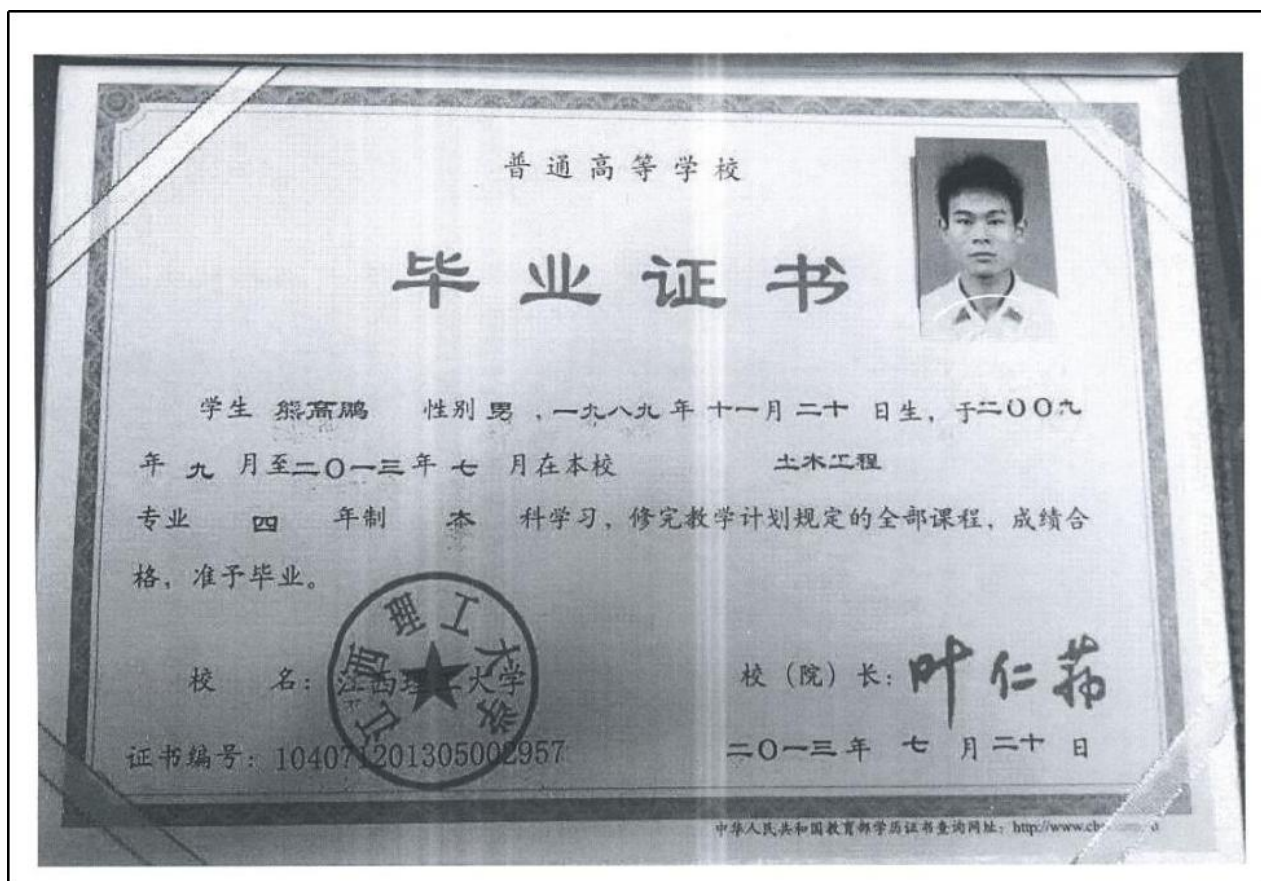 普通高等学校
毕业证书
学生 熊高鹏 性别 男，一九八九年 十一月 二十 日生，于二〇〇九
年 九 月至二〇一三年 七 月在本校 土木工程
专业 四 年制 本 科学习，修完教学计划规定的全部课程，成绩合
格，准予毕业。
江西理工大学
校 名：江西理工大学
校（院）长：叶仁荪
证书编号：104071201305002957
二〇一三年 七 月二十 日
中华人民共和国教育部学历证书查询网址：http://www.ch